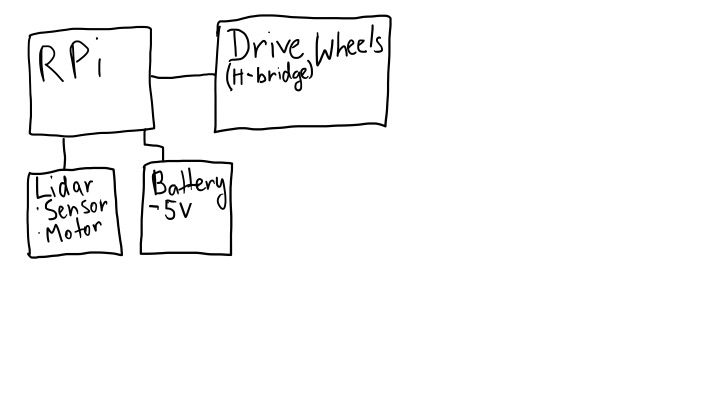 RPi
Drive Wheels
(H-bridge)
Lidar
·Sensor
·Motor
Battery
-5V